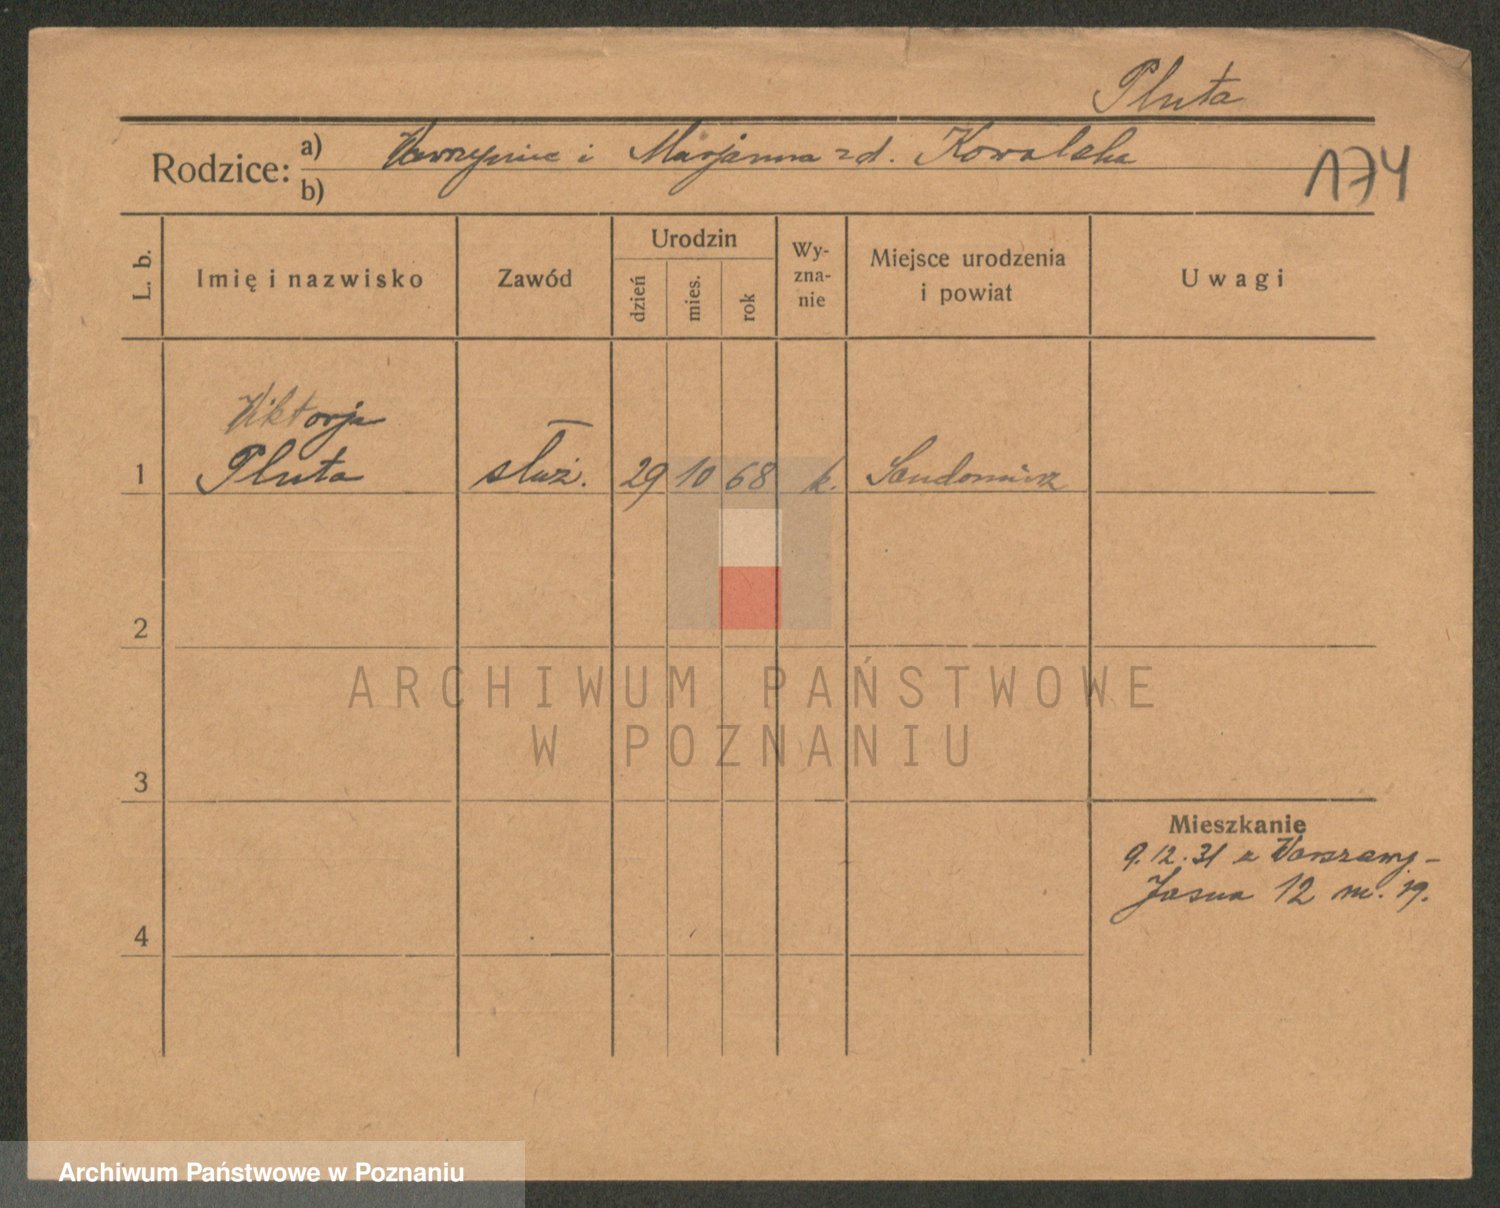 Pluta
Rodzice: a) Wawrzyniec i Marjanna zd. Kowalska
b)
174
L. b.
Imię i nazwisko
Zawód
Urodzin
dzień
mies.
rok
Wy-
zna-
nie
Miejsce urodzenia
i powiat
Uwagi
Wiktorja
1 Pluta służ. 29 10 68 k. Sandomierz
2
ARCHIWUM PAŃSTWOWE
W POZNANIU
3
Mieszkanie
9.12.31 z Warszawy –
Jasna 12 m. 19.
4
Archiwum Państwowe w Poznaniu